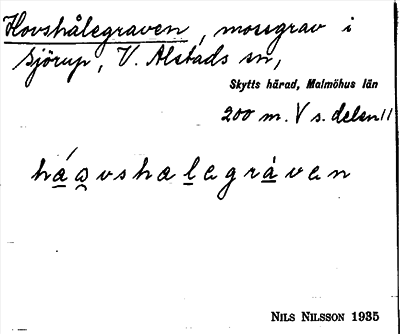 Hovshålegraven, mossgrav i
Sjörup, V. Alstads sn,
Skytts härad, Malmöhus län
200 m. V s. delen
håəvshalegråven
NILS NILSSON 1935